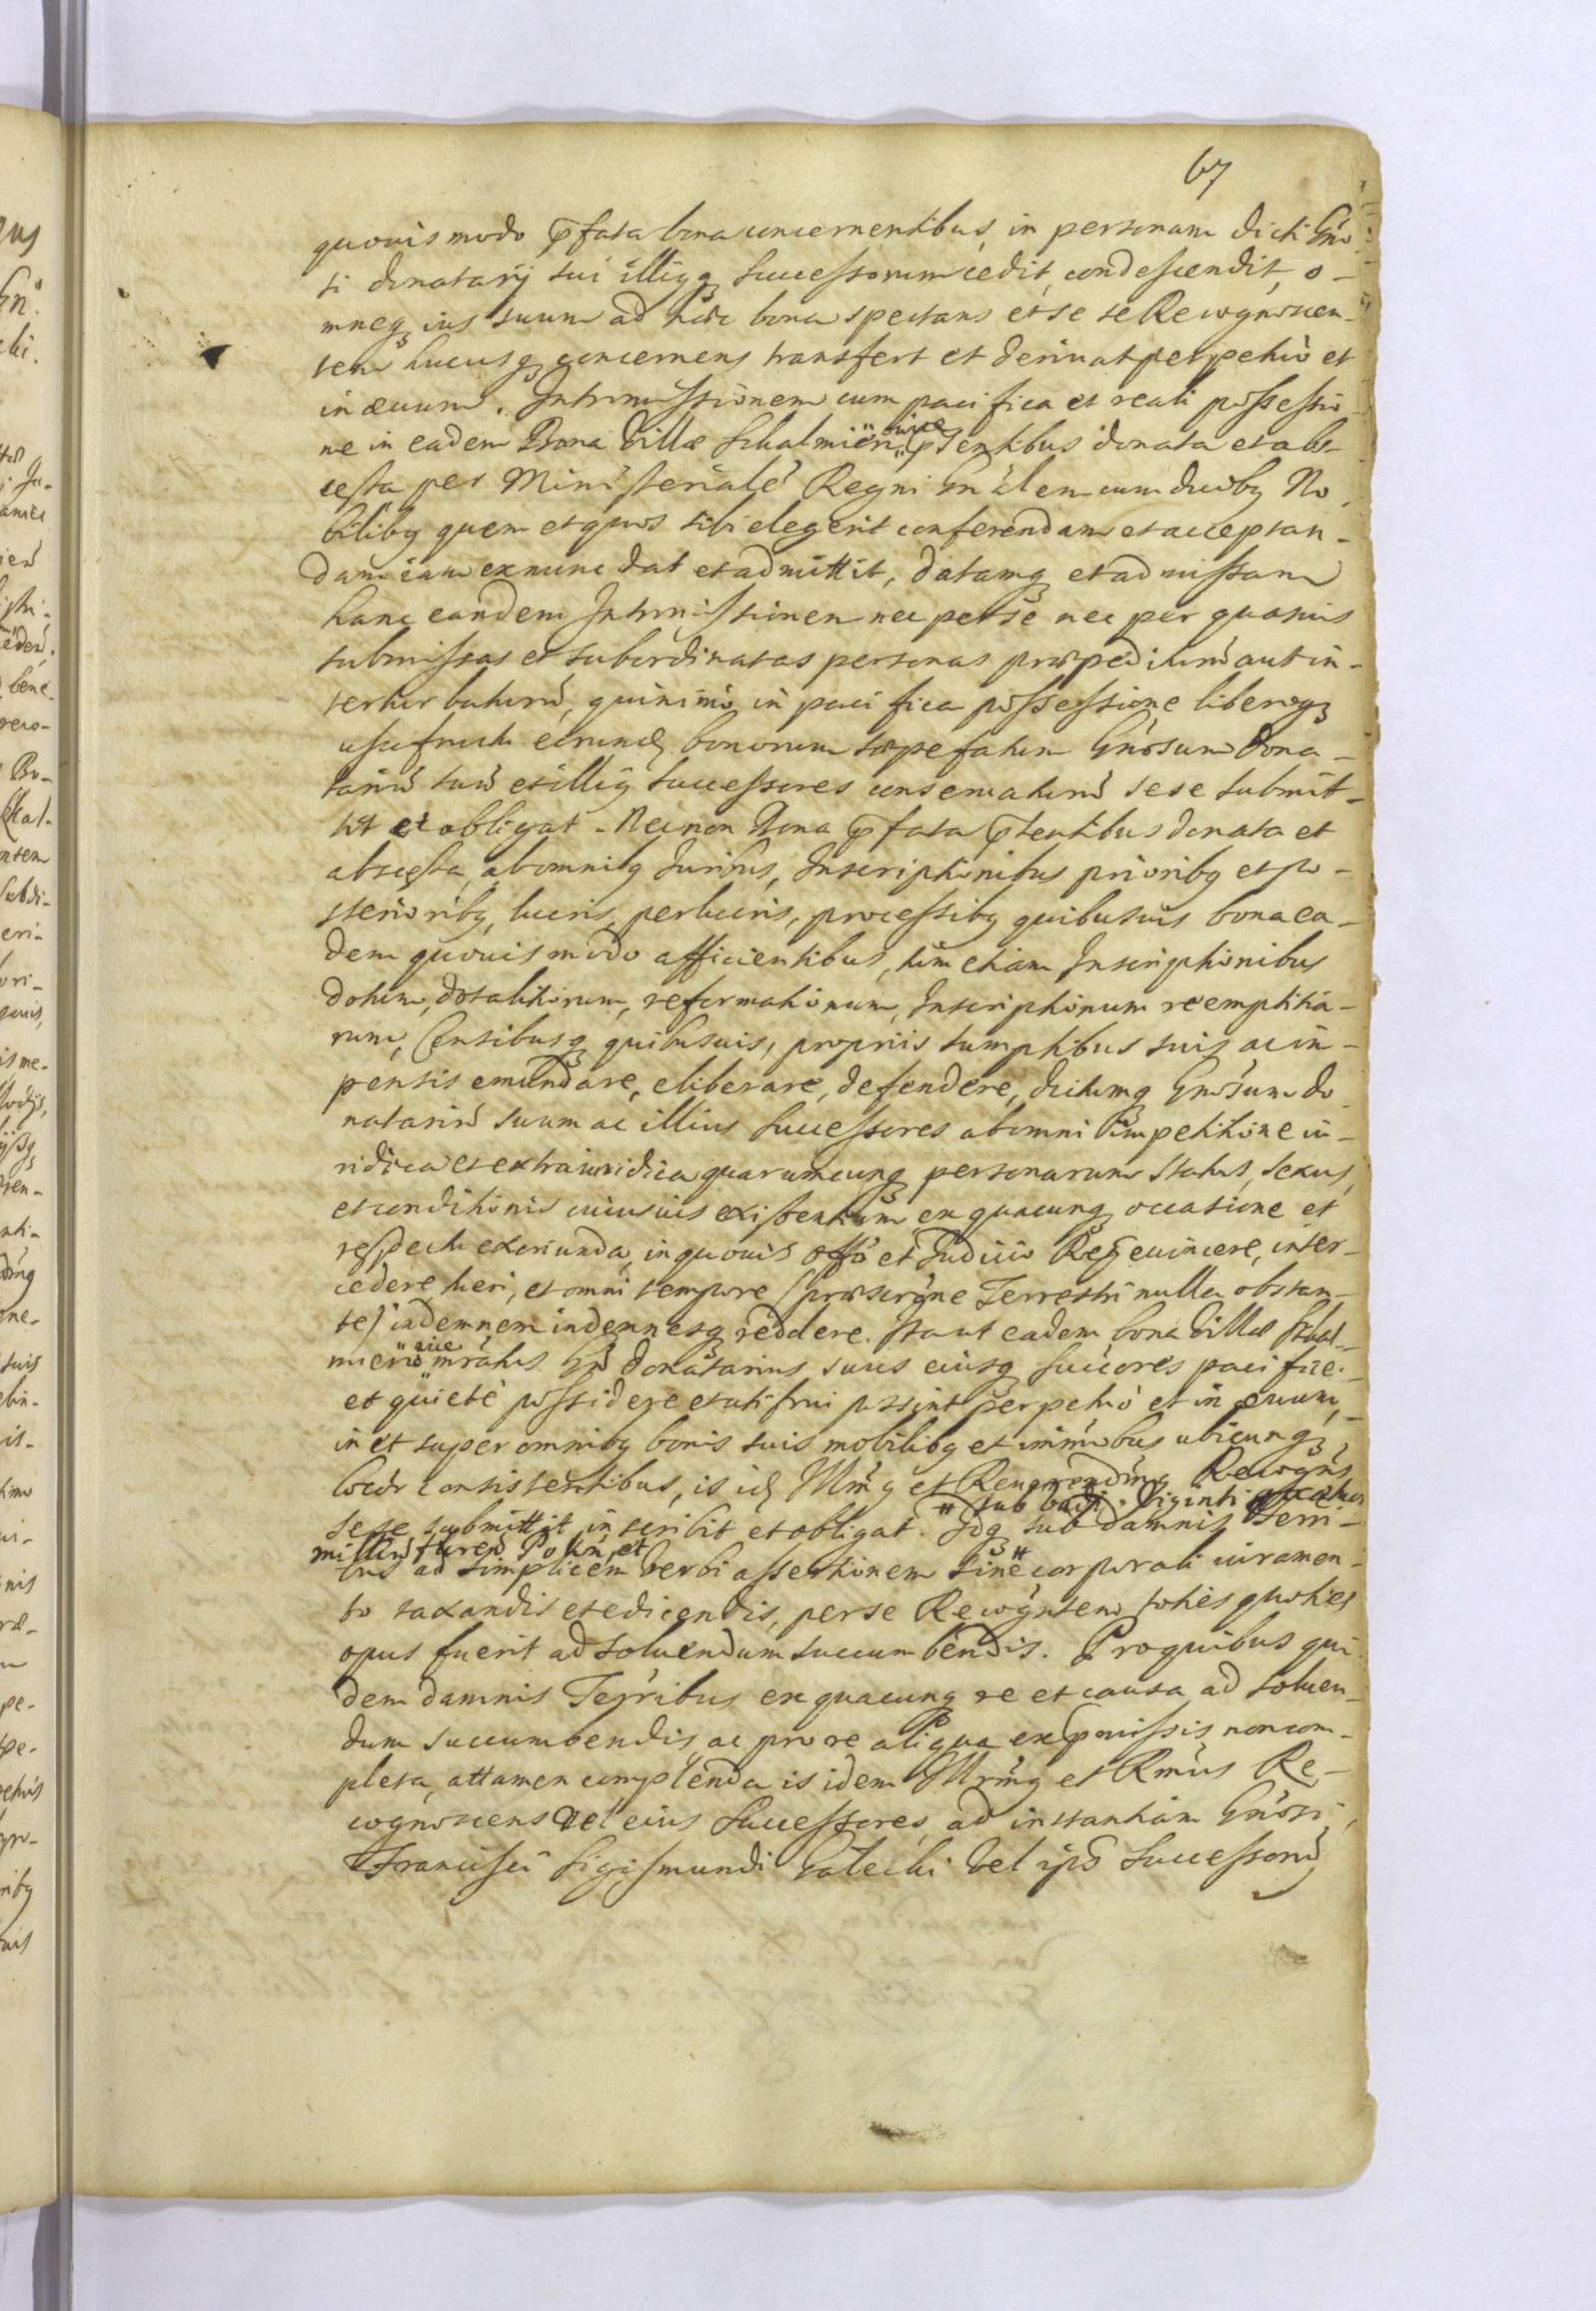 67
quouis modo p̄fata bona concernentibus, in personam dicti Gn̄o
si donatarij sui illiq̨ Successorum cedit, condescendit, o-
mneq̨ ius suum ad haec bona spectans et se se Recognoscen-
tem hucusq̨ concernens transfert et deriuat perpetuò et
in aeuum. Intromissionem cum pacifica et reali possessio-
ne in eadem Bona Villae Schalmierz̈ p̄sentibus donata et abs-
cessa per Ministerialē Regni Gn̄alem cum duobq No
bilibq quem et quos sibi elegerit conferendam et acceptan-
dam iam ex nunc dat et admittit, datamq̨ et admissam
hanc eandem Intromissionem nec per se nec per quasuis
submissas et subordinatas personas praepeditur̄ aut in-
terturbatur̄, quinimò in pacifica possessione liberoq̨
usufructu eorund̨ bonorum saepefatum Gn̄osum Dona-
tariū suū et illiq Successores conseruatur̄ sese submit-
tit et obligat. Necnon Bona p̄fata p̄sentibus donata et
abscessa, ab omnibq Iuribus, Inscriptionibus prioribq et po-
sterioribq, lucris, perlucris, processibq quibusuis bona ea-
dem quouis modo afficientibus, tùm etiam Inscriptionibus
dotum, dotalitiorum, reformationum, Inscriptionum reemptitia-
rum, Censibusq̨ quibusuis, propriis sumptibus suis ac in-
pensis emundare, eliberare, defendere, dictumq̨ Gn̄osum do
natariū suum ac illius Successores ab omni impetitione iu-
ridica et extraiuridica quarumcunq̨ personarum status, sexus,
et conditionis cuiusuis existentium, ex quacunq̨ occasione et
respectu exoriunda, in quouis Offō et Iudicio Regi euincere, inter-
cedere, tueri, et omni tempore (praescrip̄ne Terrestri nulla obstan-
te) indemnem indemnesq̨ reddere. Ita ut eadem bona Villae Schal-
mierz̈ m̄ratus Gn̄ donatarius suus eiusq̨ Succ̄ores pacificè
et quietè possidere et uti frui possint perpetuò et in aeuum,
in et super omnibq bonis suis mobilibq et im̄m̄bus ubicunq̨
locōr consistentibus, is id̨ Mm̄q et Reuerendm̄q Recogn̄s
# sub vadi Viginti
sese submittit inscribit et obligat. Idq̨ sub damnis Terri-
millium floren Polon, et
bus ad simplicem verbi assertionem sine corporali iuramen-
to taxandis et edicendis, per se Recogn̄sen toties quoties
opus fuerit ad soluendum succumbendis. Pro quibus qui
dem damnis Terr̄ribus ex quacunq̨ re et causa ad soluen-
dum succumbendis, ac pro re aliqua ex p̄missis non com-
pleta, attamen complenda is idem M̄rm̄q et Rm̄us Re-
cognoscens vel eius Successores, ad instantiam Gn̄osi
Francisci Sigismundi Galecki vel ips̄ Successorū